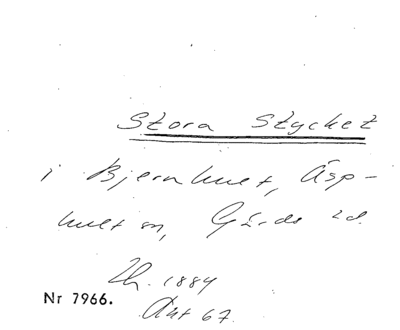 Stora Stycket
i Bjernhult, Äsp-
hult sn, Gärds hd.
Lh. 1884
Akt 67.
Nr 7966.